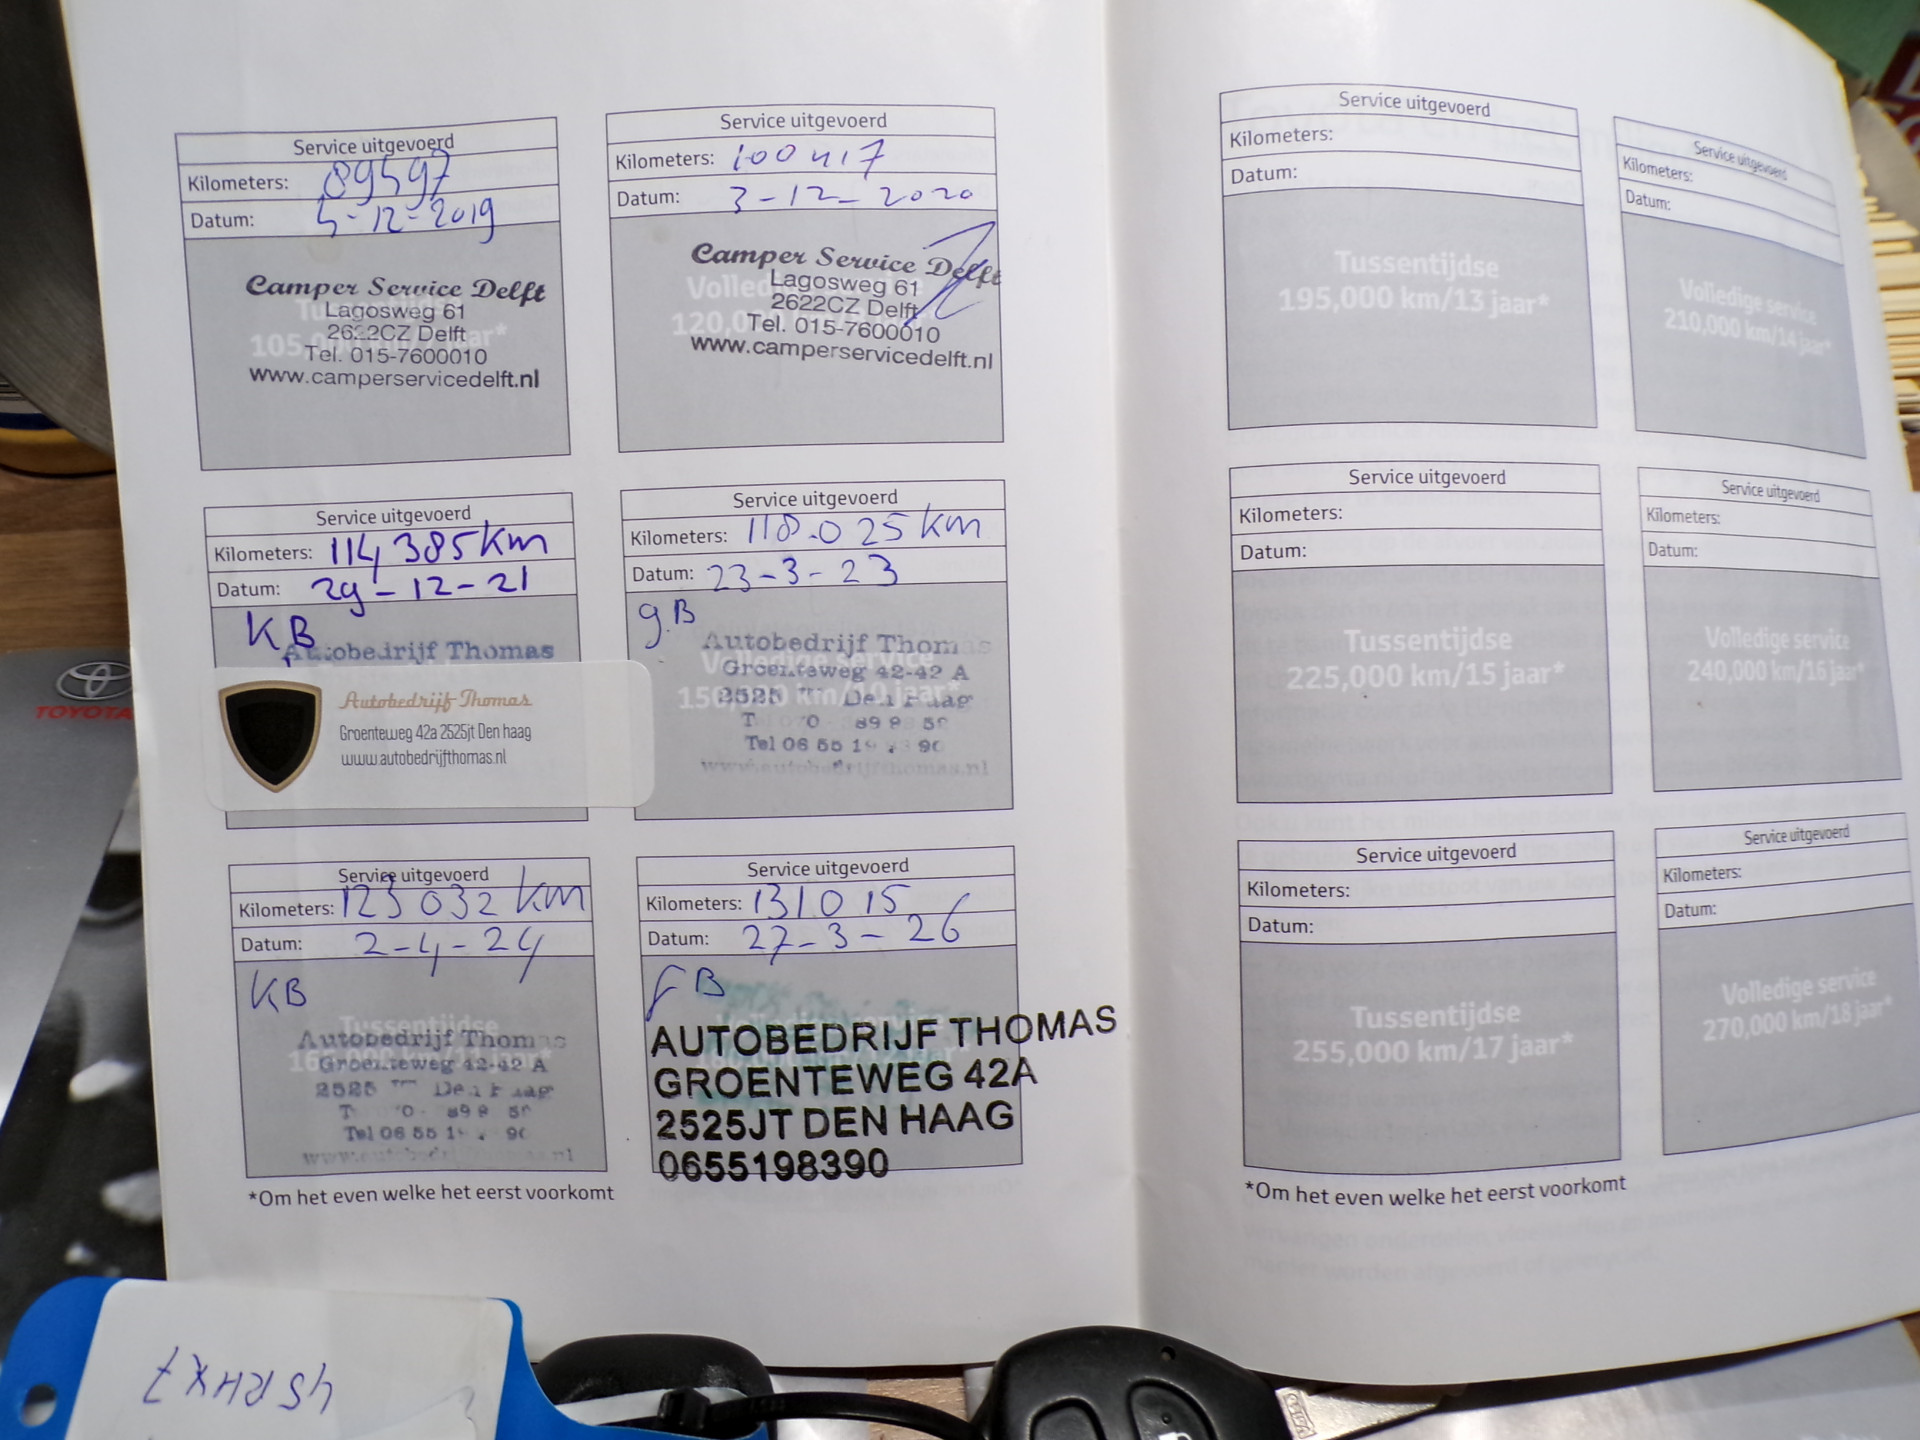 Service uitgevoerd
Kilometers: 89597
Datum: 5-12-2019
Camper Service Delft
Lagosweg 61
2622CZ Delft
Tel. 015-7600010
www.camperservicedelft.nl
Service uitgevoerd
Kilometers: 100417
Datum: 3-12-2020
Camper Service Delft
Lagosweg 61
2622CZ Delft
Tel. 015-7600010
www.camperservicedelft.nl
Service uitgevoerd
Kilometers: 114385km
Datum: 29-12-21
KB
Autobedrijf Thomas
Autobedrijf Thomas
Groenteweg 42a 2525jt Den haag
www.autobedrijfthomas.nl
Service uitgevoerd
Kilometers: 118.025 km
Datum: 23-3-23
g.B
Autobedrijf Thomas
Groenteweg 42-42 A
2525 Den Haag
Tel 06 55 19 90
www.autobedrijfthomas.nl
Service uitgevoerd
Kilometers: 123032 km
Datum: 2-4-24
KB
Tussentijdse
Autobedrijf Thomas
Groenteweg 42-42 A
2525 Den Haag
Tel 06 55 1
www.autobedrijfthomas.nl
Service uitgevoerd
Kilometers: 131015
Datum: 27-3-26
B
AUTOBEDRIJF THOMAS
GROENTEWEG 42A
2525JT DEN HAAG
0655198390
*Om het even welke het eerst voorkomt
Service uitgevoerd
Kilometers:
Datum:
Tussentijdse
195,000 km/13 jaar*
Service uitgevoerd
Kilometers:
Datum:
Volledige service
210,000 km/14 jaar*
Service uitgevoerd
Kilometers:
Datum:
Tussentijdse
225,000 km/15 jaar*
Service uitgevoerd
Kilometers:
Datum:
Volledige service
240,000 km/16 jaar*
Service uitgevoerd
Kilometers:
Datum:
Tussentijdse
255,000 km/17 jaar*
Service uitgevoerd
Kilometers:
Datum:
Volledige service
270,000 km/18 jaar*
*Om het even welke het eerst voorkomt
TOYOTA